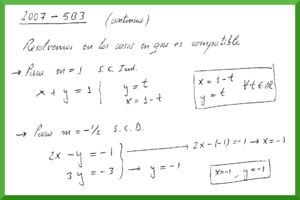 2007 - 5B3 (continua)
Resolvemos en los casos en que es compatible
→ Para m = 1 S.C. Ind.
x + y = 1 } y = t
x = 1 - t
x = 1 - t
y = t
∀ t ∈ ℝ
→ Para m = -1/2 S.C.D.
2x - y = -1 } → 2x - (-1) = -1 → x = -1
3y = -3 } → y = -1
x = -1, y = -1